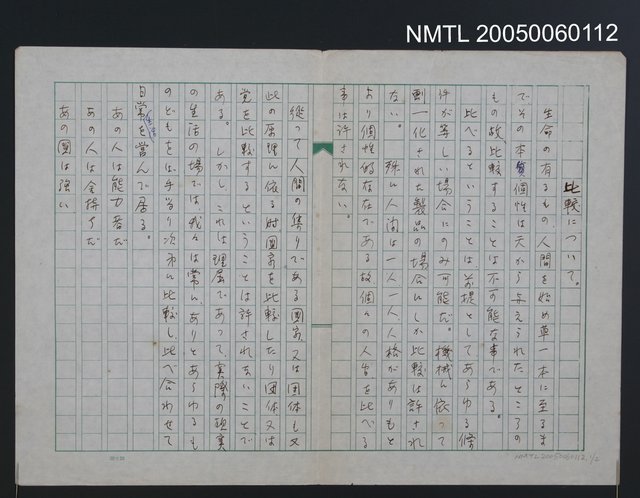 NMTL 20050060112
比較について。
生命の有るもの、人間を始め草一本に至るま
でその本質個性は天から与えられたところの
もの故、比較することは不可能な事である。
比べるということは、前提としてあらゆる條
件が等しい場合にのみ可能だ。機械に依って
劃一化された製品の場合にしか比較は許され
ない。殊に人間は一人一人人格がありもと
より個性的な存在である故個々の人間を比べる
事は許されない。
従って人間の集りである國家又は団体も又
此の原理に依る時国家を比較したり団体又は
党を比較するということは許されないことで
ある。しかし、これは理屈であって、実際の現実
の生活の場では我々は常に、ありとあらゆるも
のどもをば、手当り次第に比較し、比べ合わせて
日常生活を営んで居る。
あの人は能力者だ
あの人は金持ちだ
あの國は強い
NMTL20050060112 1/2